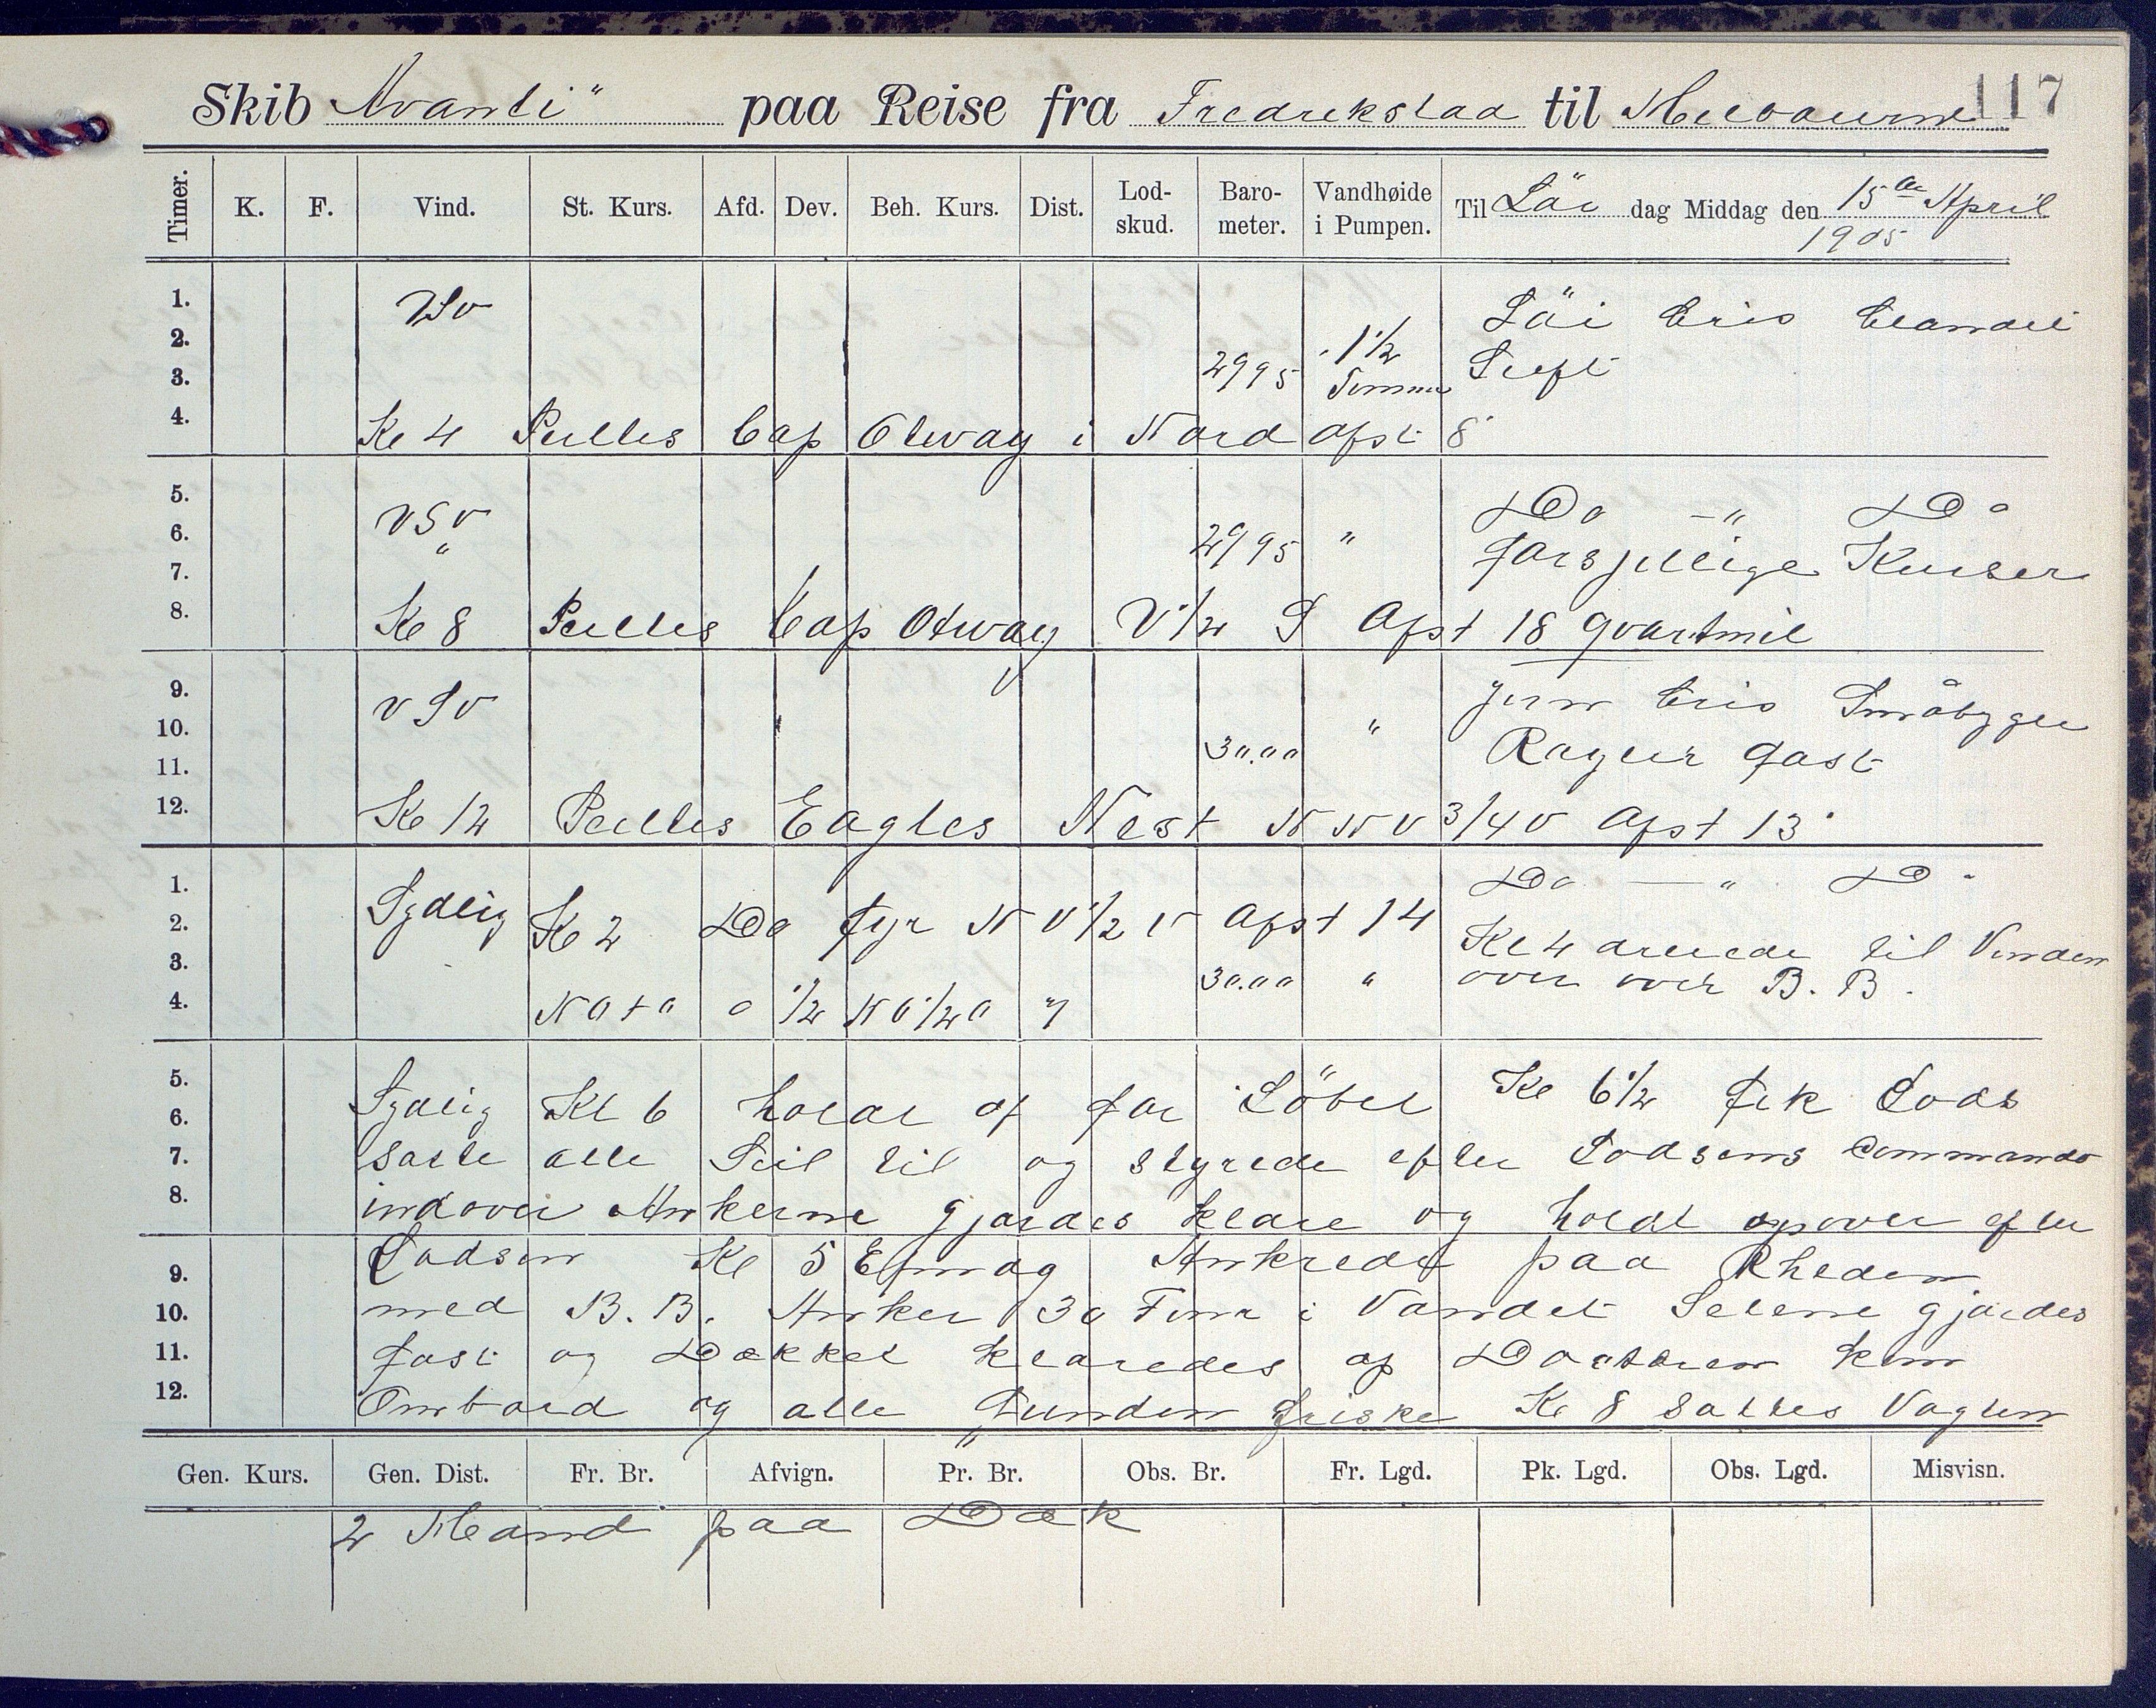 117
Skib "Avanti" paa Reise fra Fredrikstad til Melbourne
Timer. K. F. Vind. St. Kurs. Afd. Dev. Beh. Kurs. Dist. Lod-skud. Baro-meter. Vandhøide i Pumpen. Til Lör dag Middag den 15de April 1905
1. VSV Löi Bris blandet
2. 1 1/2
3. 2995 Tommer Luft
4. Kl 4 Peiltes Cap Otway i Nord afst 8'
5. Do -"- Do
6. VSV 2995 "
7. " forskjellige Kurser
8. Kl 8 Peiltes Cap Otway V 1/2 S Afst 18 Qvartmil
9. VSV jevn Bris Småbyger
10. "
11. 30.00 fast
12. Kl 12 Peiltes Eagles Nest NNV 3/4 V Afst 13'
1. Do -"- Do
2. Sydlig Kl 2 Do Fyr NV 1/2 V Afst 14 Kl 4 til Vinden
3. 30.00 " over B.B.
4. NOtO 0 1/2 NO 1/2 O 7
5. Sydlig Kl 6 holdt af for Löbet Kl 6 1/2 Fik Lods
6.
7. satte alle Seil til og styrede efter Lodsens Commando
8. indover Ankerne gjordes klare og holdt opover efter
Lodsen Kl 5 Efmdag Ankrede paa Rheden
9.
10. med B.B. Anker 30 Favn i Vandet Seilene gjordes
11. fast og Dækket klaredes op Doctoren kom
12. Ombord og alle Funden friske Kl 8 sattes Vagten
Gen. Kurs. Gen. Dist. Fr. Br. Afvign. Pr. Br. Obs. Br. Fr. Lgd. Pk. Lgd. Obs. Lgd. Misvisn.
2 Mand paa Dæk